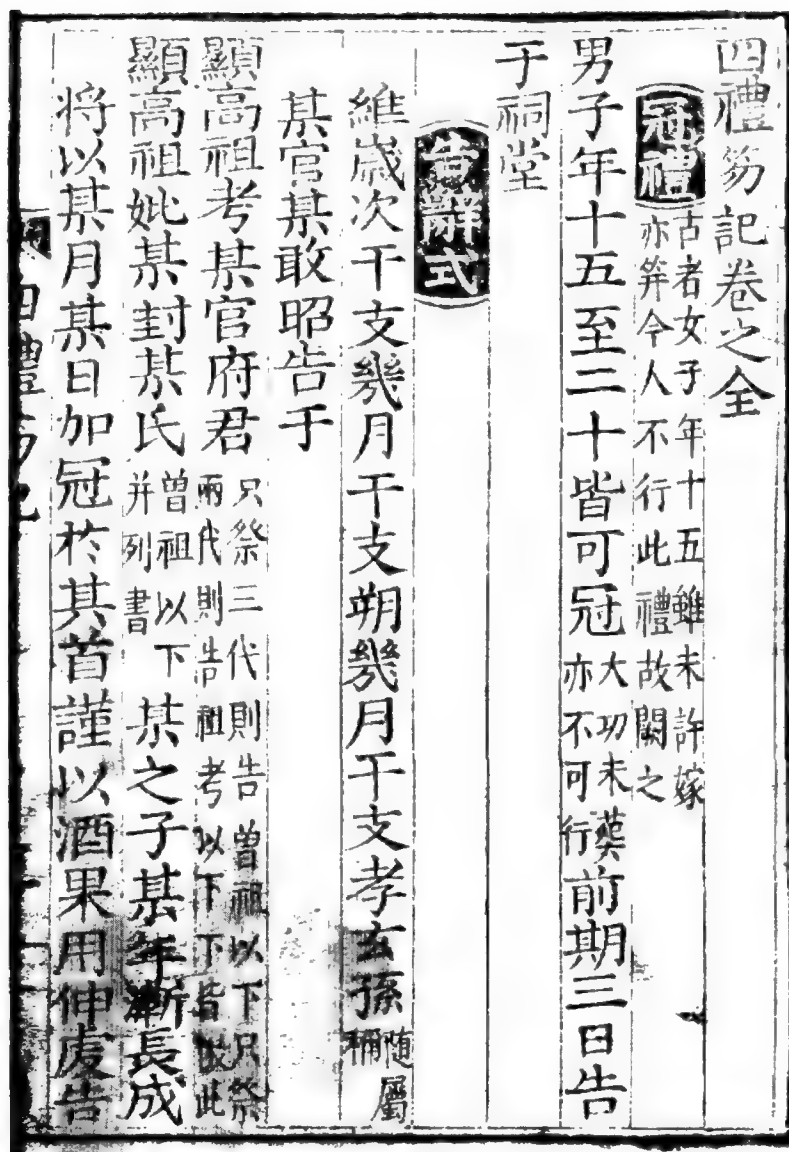 四禮笏記卷之全
冠禮 古者女子年十五雖未許嫁
亦筓今人不行此禮故闕之
男子年十五至二十皆可冠 大功未葬
亦不可行 前期三日告
于祠堂
告辭式
維歲次干支幾月干支朔幾月干支孝玄孫 隨屬
稱
某官某敢昭告于
顯高祖考某官府君 只祭三代則告曾祖以下只祭
兩代則告祖考以下下皆倣此
顯高祖妣某封某氏 曾祖以下
并列書 某之子某年漸長成
將以某月某日加冠於其首謹以酒果用伸虔告
四禮笏記